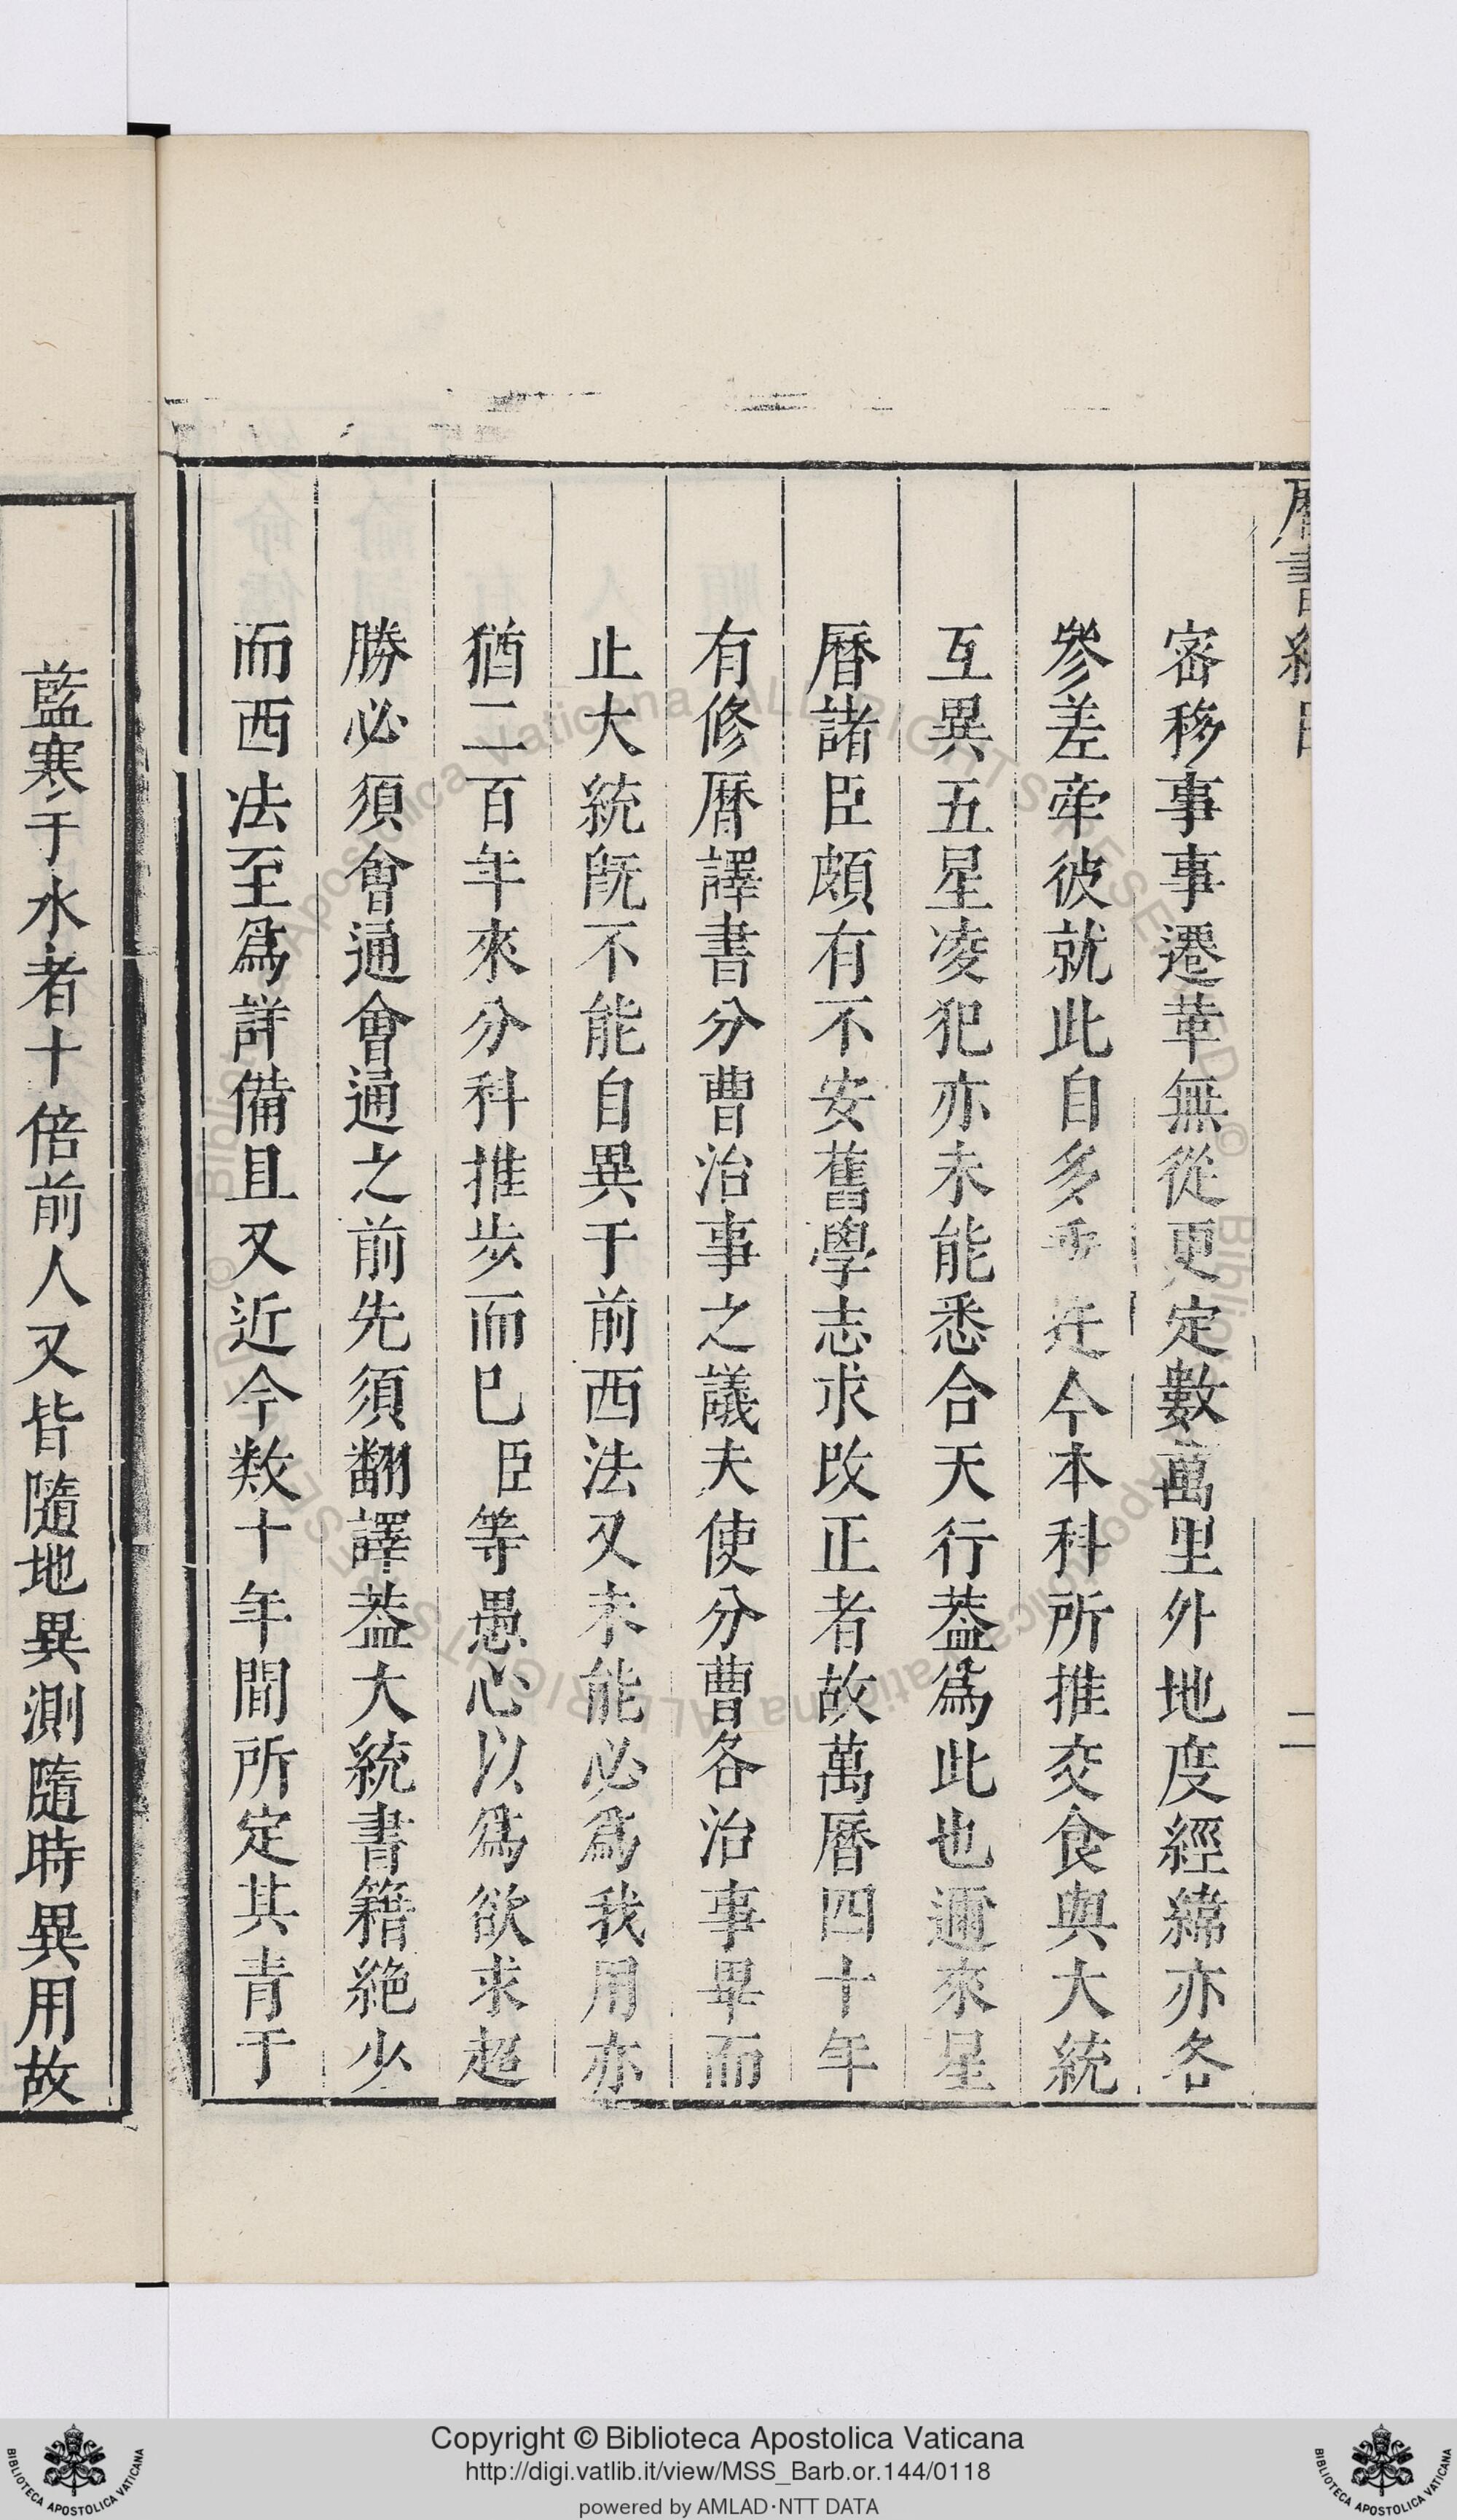 密移事事遷革無從更定數萬里外地度經緯亦各
參差牽彼就此自多乖迕今本科所推交食與大統
互異五星凌犯亦未能悉合天行葢爲此也邇來星
曆諸臣頗有不安舊學志求改正者故萬曆四十年
有修曆譯書分曹治事之議夫使分曹各治事畢而
止大統旣不能自異于前西法又未能必爲我用亦
猶二百年來分科推步而已臣等愚心以爲欲求超
勝必須會通會通之前先須翻譯葢大統書籍絶少
而西法至爲詳備且又近今数十年間所定其青于
藍寒于水者十倍前人又皆隨地異測隨時異用故
二
Copyright © Biblioteca Apostolica Vaticana
http://digi.vatlib.it/view/MSS_Barb.or.144/0118
powered by AMLAD·NTT DATA
BIBLIOTECA APOSTOLICA VATICANA
BIBLIOTECA APOSTOLICA VATICANA